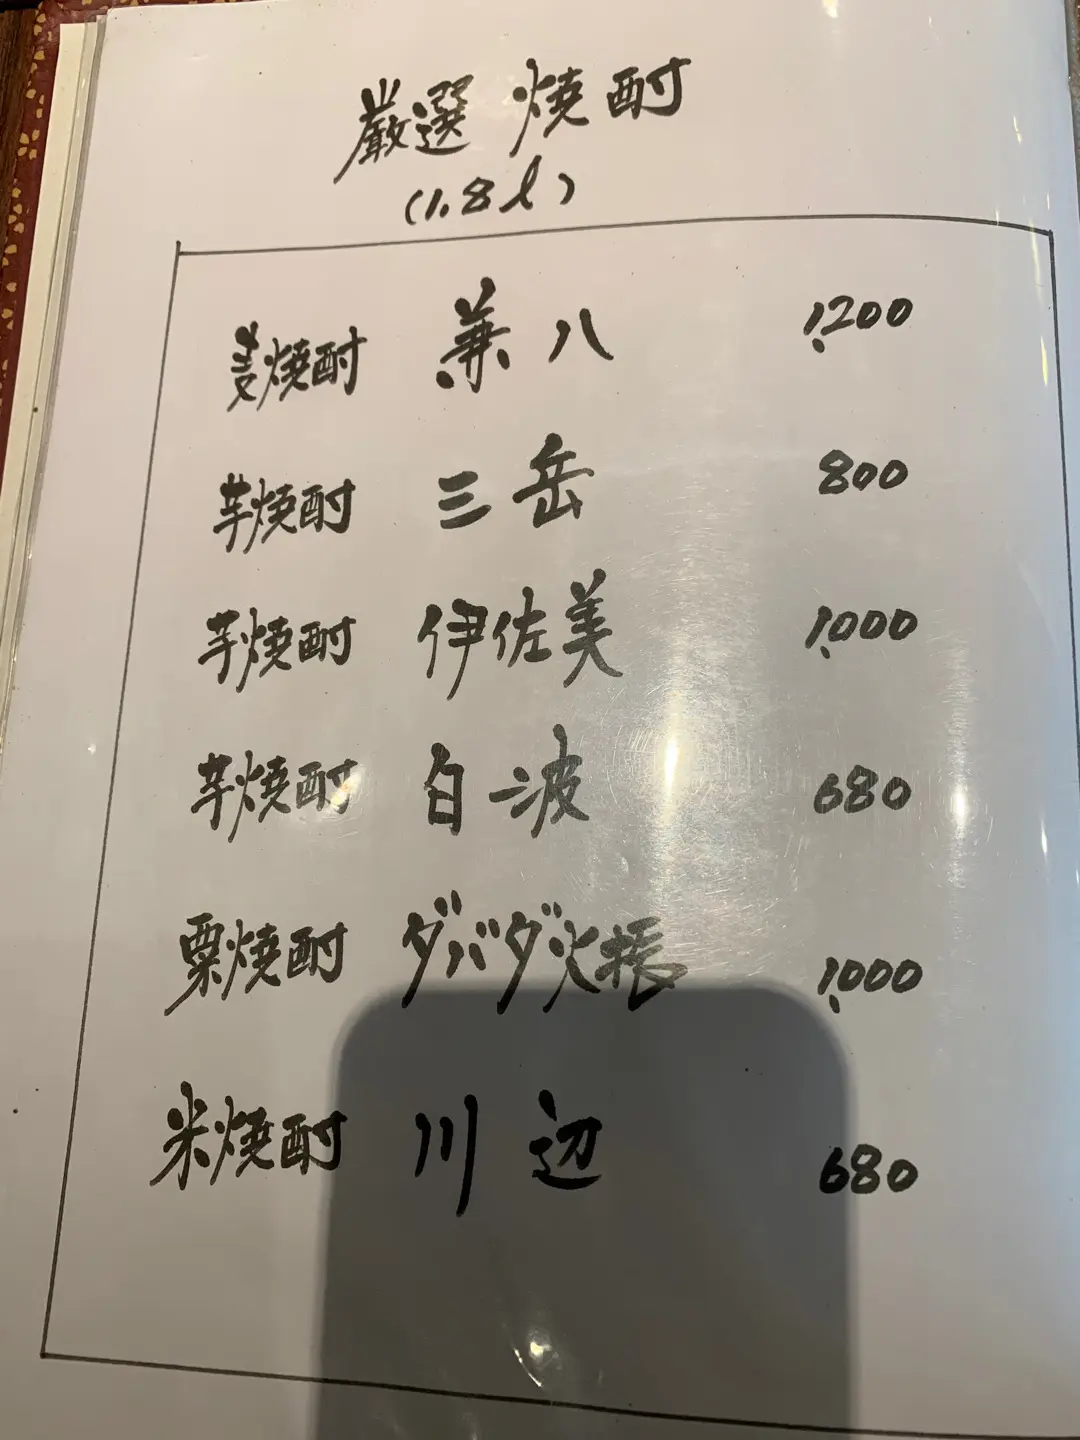 厳選 焼酎
(1.8ℓ)
麦焼酎 兼八 1,200
芋焼酎 三岳 800
芋焼酎 伊佐美 1,000
芋焼酎 白波 680
粟焼酎 ダバダ火振 1,000
米焼酎 川辺 680